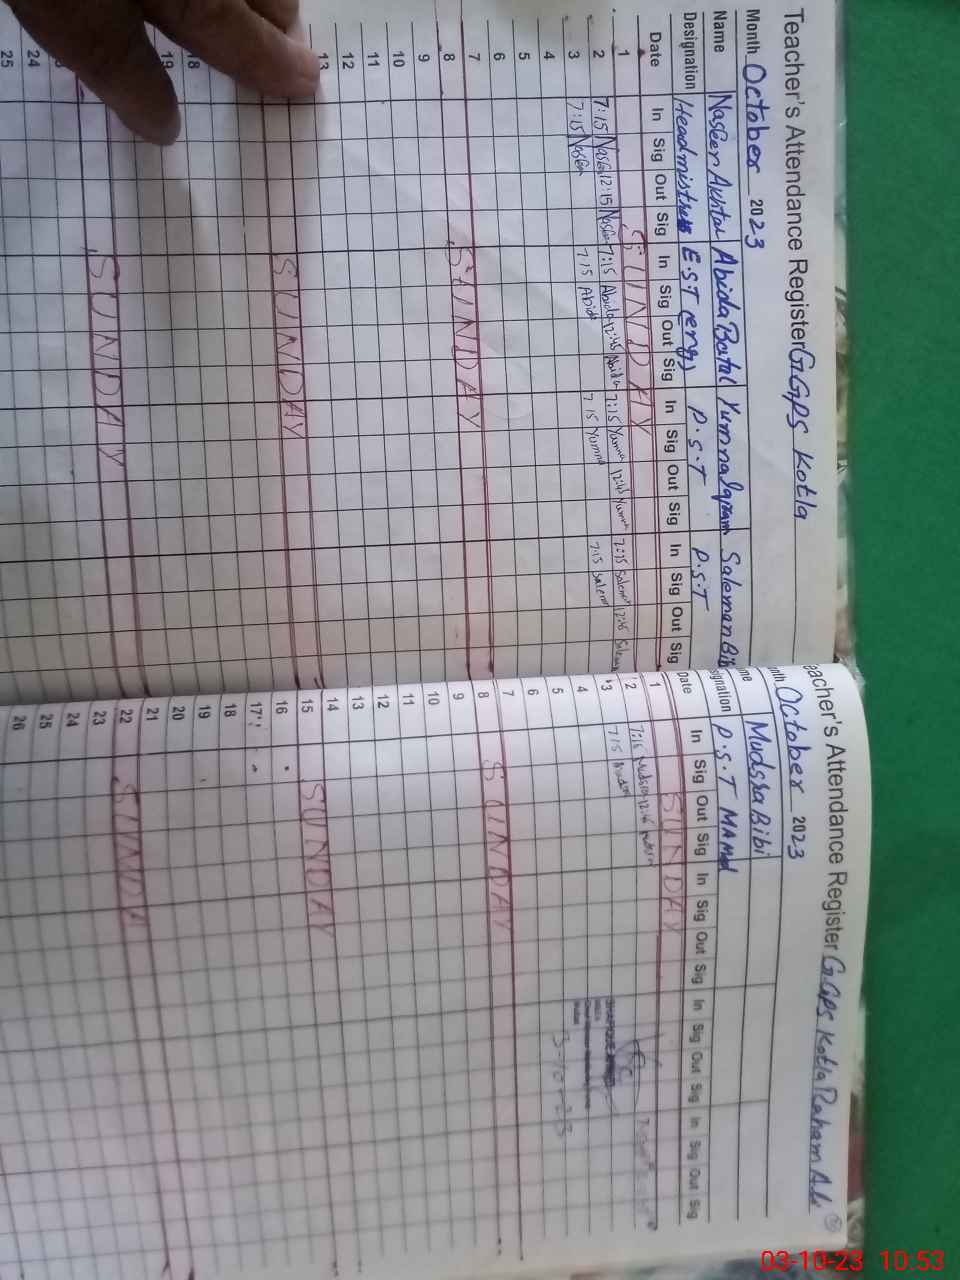 Teacher's Attendance Register G.GPS Kotla
Month October 2023
Name Naseer Akhtar Abida Batal Yumna Iqram Saleman Bibi
Designation Headmistress E.S.T (eng) P.S.T P.S.T
Date In Sig Out Sig In Sig Out Sig In Sig Out Sig In Sig Out Sig
1 SUNDAY
2 7:15 Naseer 12:15 Naseer 7:15 Abida 12:45 Abida 7:15 Yumna 12:45 Yumna 7:15 Salema 12:45
3 7:15 Naseer 7:15 Abida 7:15 Yumna 7:15 Salema
4
5
6
7
8 SUNDAY
9
10
11
12
13
SUNDAY
18
19
SUNDAY
24
25
eacher's Attendance Register G.GPS Kotla Raham Ali
nth October 2023
me Mudssa Bibi
signation P.S.T
Date In Sig Out Sig In Sig Out Sig In Sig Out Sig In Sig Out Sig
1 SUNDAY
2 7:15 12:45
3 7:15
4
5
3-10-23
6
7
8 SUNDAY
9
10
11
12
13
14
15 SUNDAY
16
17
18
19
20
21
22 SUNDA
23
24
25
26
03-10-23 10:53